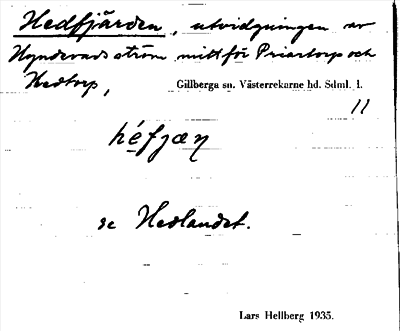 Hedfjärden, utvidgningen av
Hyndevads ström mitt för Priastorp och
Hedtorp, Gillberga sn. Västerrekarne hd. Sdml. l.
11
héfjæṇ
se Hedlandet.
Lars Hellberg 1935.